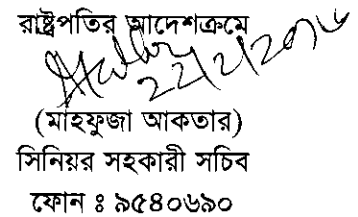 রাষ্ট্রপতির আদেশক্রমে
22/2/2016
(মাহফুজা আকতার)
সিনিয়র সহকারী সচিব
ফোন ঃ ৯৫৪০৬৯০